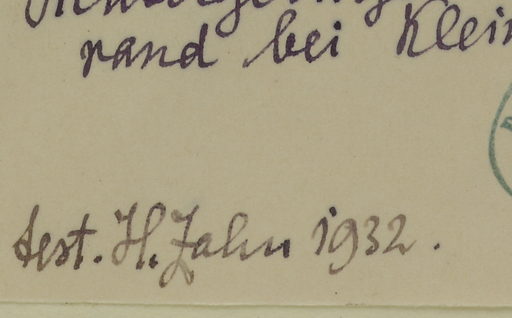 rand bei Klein
test. H. Zahn 1932.